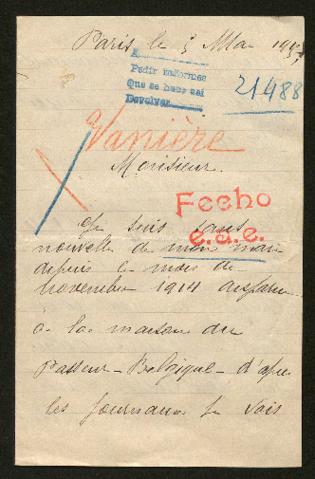 Paris le 3 Mai 1917
A
Pedir informes
Que se hace así
Devolver
21488
Vanière
Monsieur.
Fecho
e.a.e.
Je suis sans
nouvelle de mon mari
depuis le mois de
novembre 1914 disparu
à la maison du
Passeur - Belgique - d'après
les journaux je vois